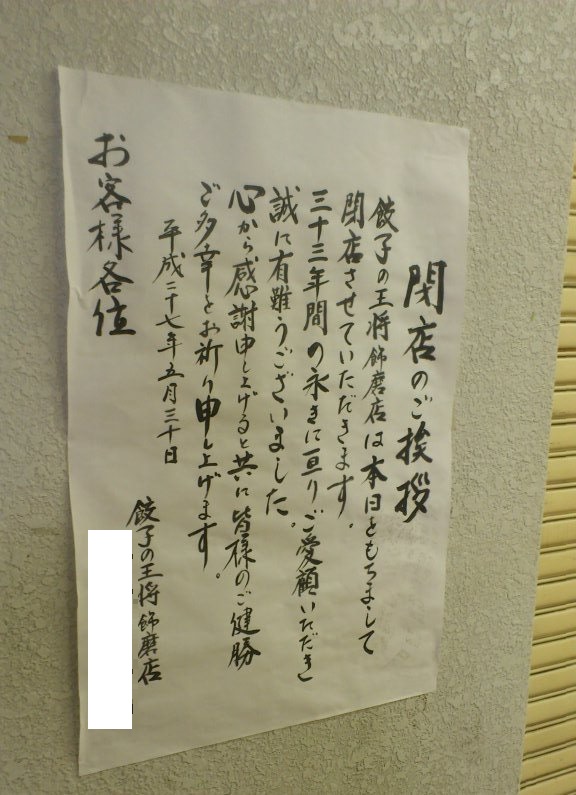 閉店のご挨拶
餃子の王将飾磨店は本日をもちまして
閉店させていただきます。
三十三年間の永きに亘りご愛顧いただき
誠に有難うございました。
心から感謝申し上げると共に皆様のご健勝
ご多幸をお祈り申し上げます。
平成二十七年五月三十日
餃子の王将飾磨店
お客様各位